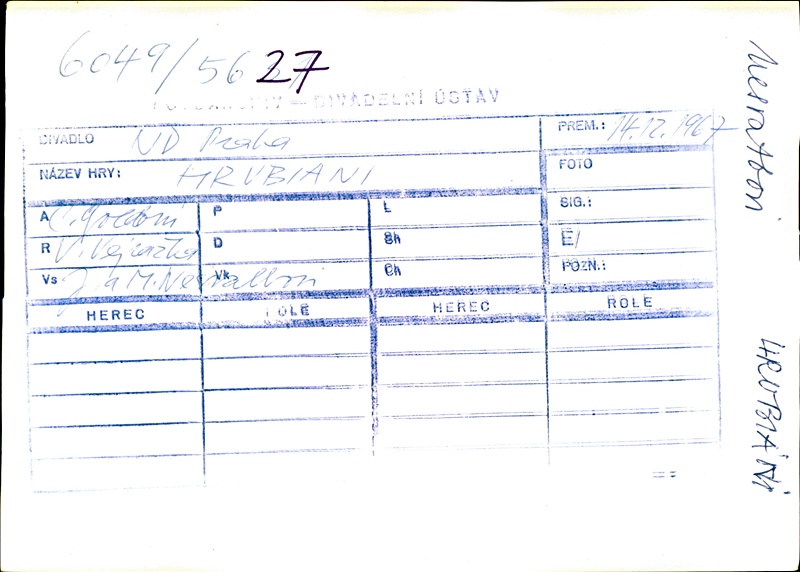 6049/5627
FOTOARCHIV — DIVADELNÍ ÚSTAV
DIVADLO ND Praha
PREM.: 14.12.1967
NÁZEV HRY: HRUBIÁNI
FOTO
A C. Goldoni
P
L
SIG.:
R V. Vejražka
D
Sh
E/
Vs J. a M. Nesvadbovi
Vk
Ch
POZN.:
HEREC ROLE HEREC ROLE
HRUBIÁNI